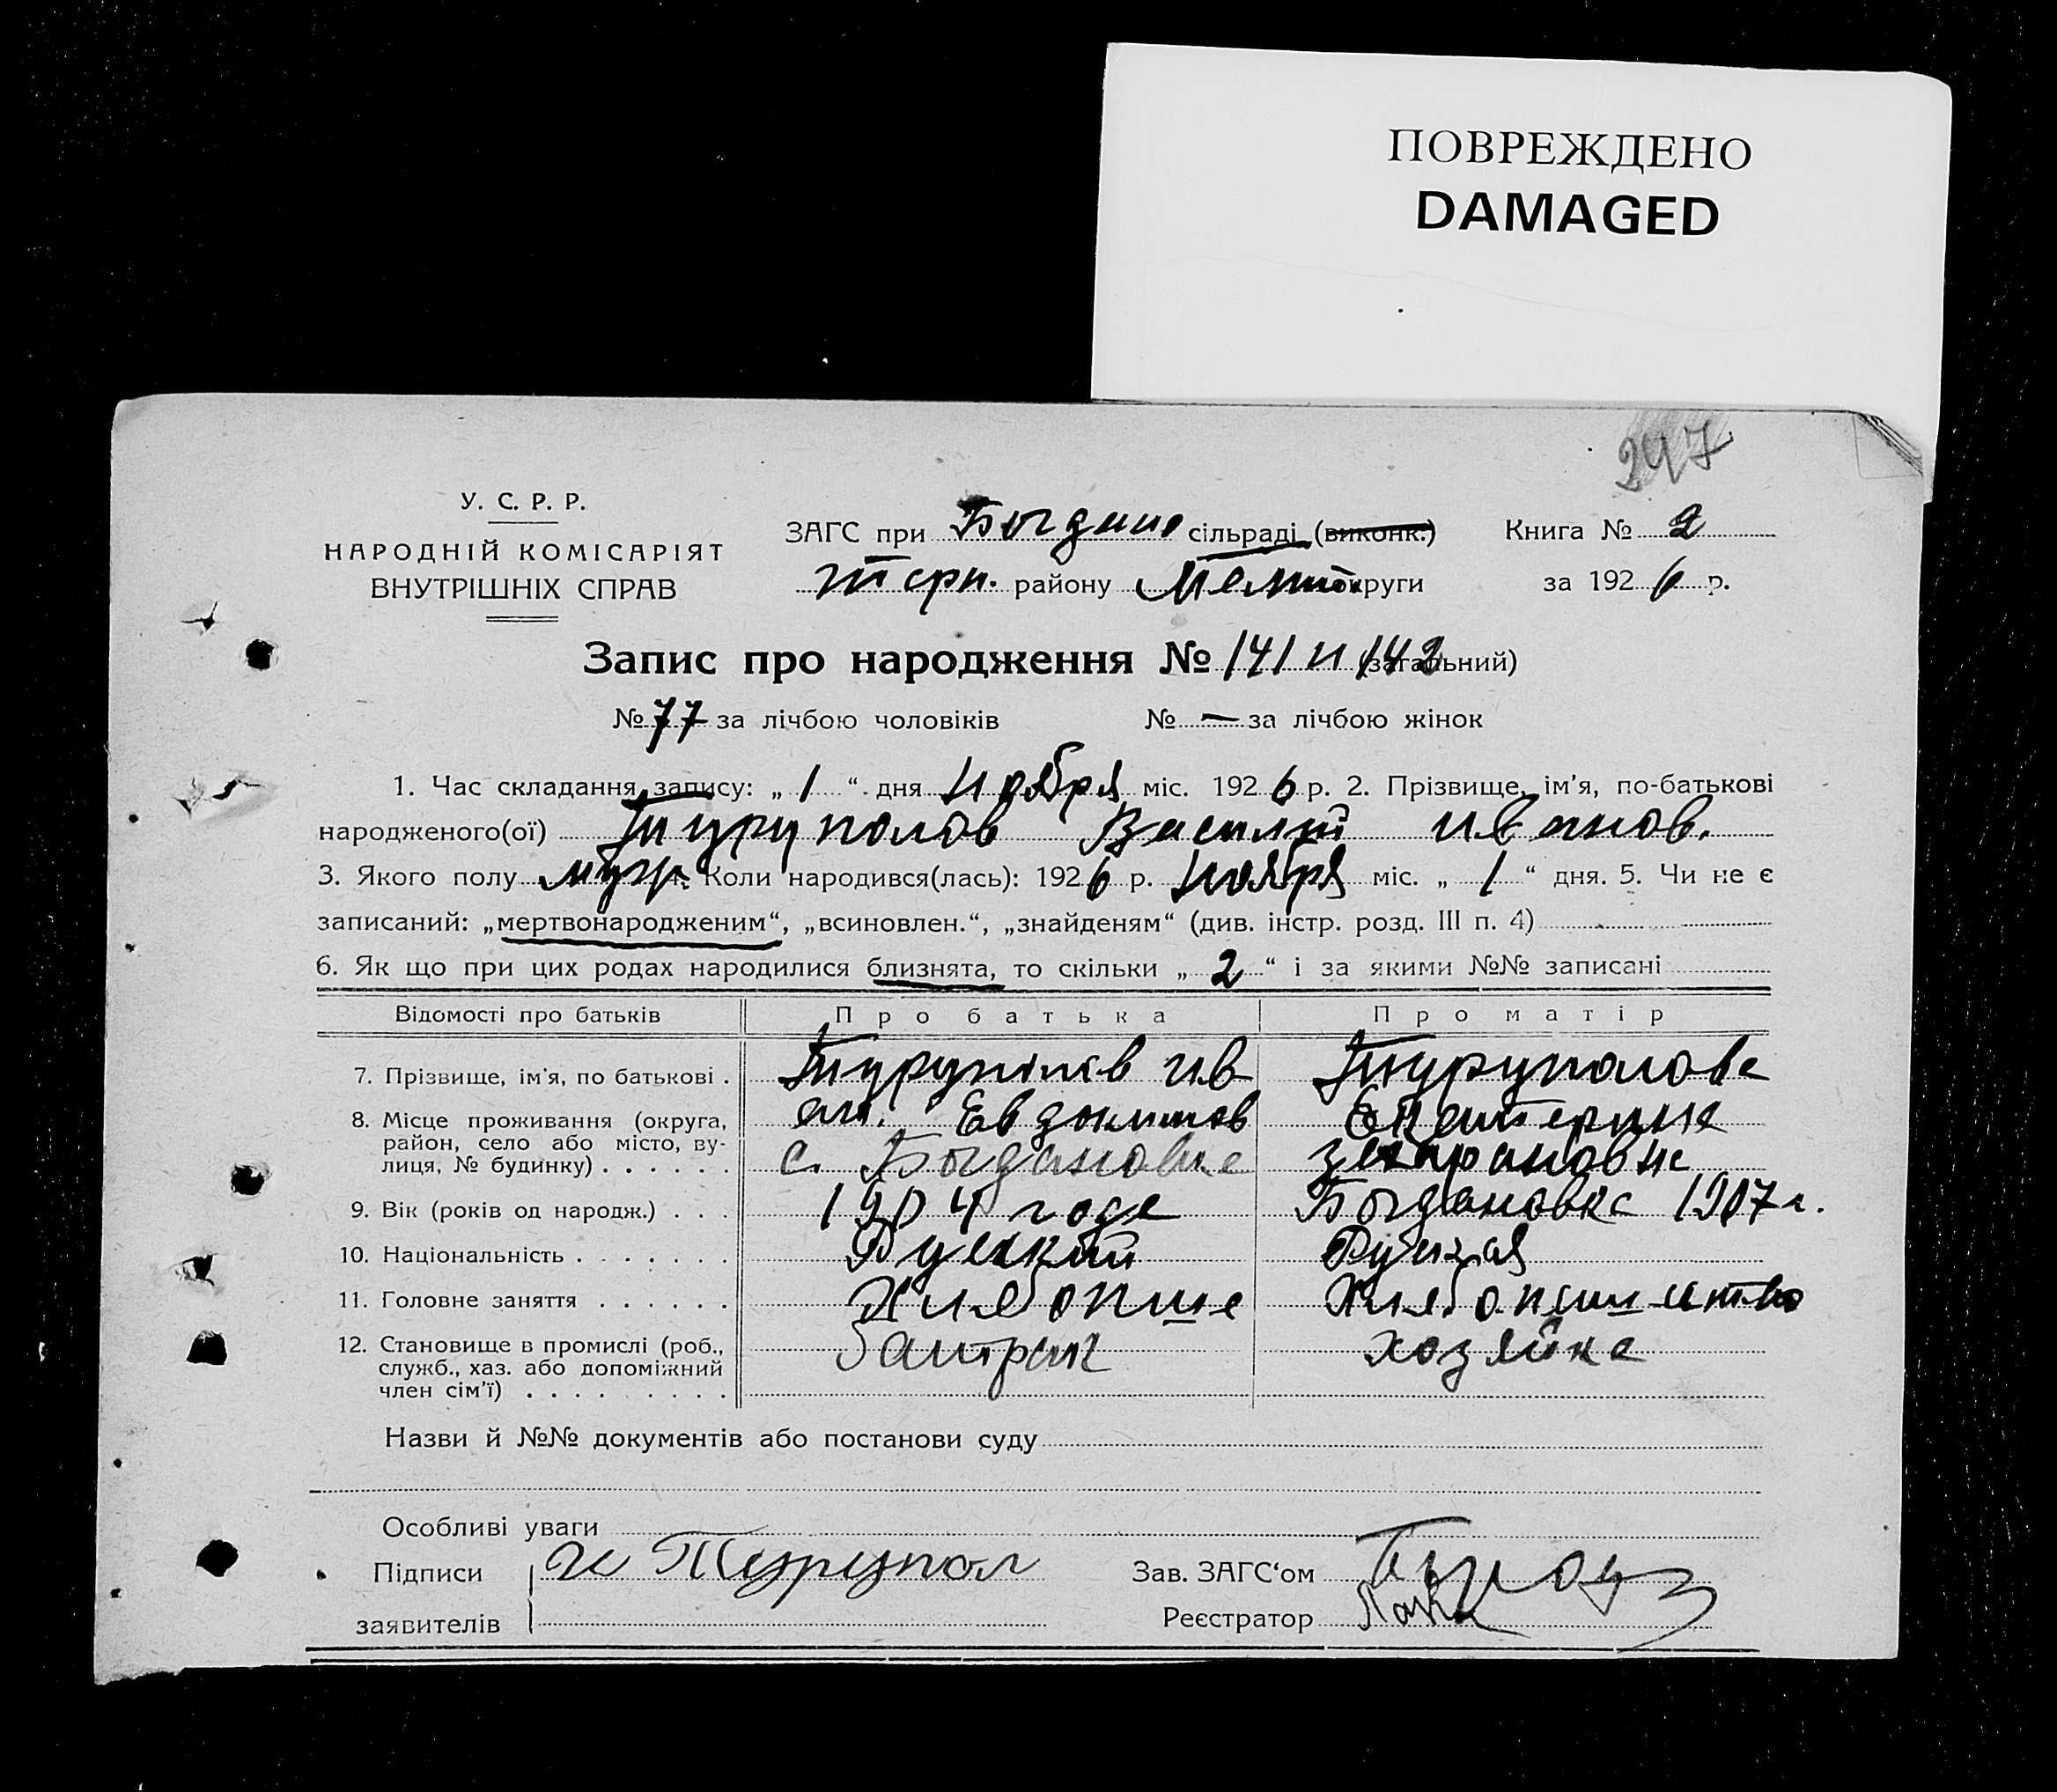 ПОВРЕЖДЕНО
DAMAGED
247
У. С. Р. Р.
НАРОДНІЙ КОМІСАРІЯТ
ВНУТРІШНІХ СПРАВ
ЗАГС при Богдано сільраді (виконк.) Книга № 2
терп. району Мелит округи за 1926 р.
Запис про народження № 141 и 142 (загальний)
№ 77 за лічбою чоловіків № — за лічбою жінок
1. Час складання запису: „ 1 “ дня Ноября міс. 1926 р. 2. Прізвище, ім’я, по-батькові
народженого(ої) Туруполов Василий Иванов.
3. Якого полу муж. 4. Коли народився(лась): 1926 р. Ноября міс. „ 1 “ дня. 5. Чи не є
записаний: „мертвонародженим“, „всиновлен.“, „знайденям“ (див. інстр. розд. III п. 4)
6. Як що при цих родах народилися близнята, то скільки „ 2 “ і за якими №№ записані
Відомості про батьків Про батька Про матір
7. Прізвище, ім’я, по батькові . Туруполов Ив Туруполова
8. Місце проживання (округа, ан. Евдокимов Екатерина
район, село або місто, ву-
лиця, № будинку) . . . . . . с. Богдановка
9. Вік (років од народж.) . . . 1904 года Богдановка 1907 г.
10. Національність . . . . . . . Руский Руская
11. Головне заняття . . . . . . Хлебопаше Хлебопашество
12. Становище в промислі (роб., батрак хозяйка
служб., хаз. або допоміжний
член сім’ї) . . . . . . . . .
Назви й №№ документів або постанови суду
Особливі уваги
Підписи И Турупол Зав. ЗАГС‘ом
заявителів Реєстратор